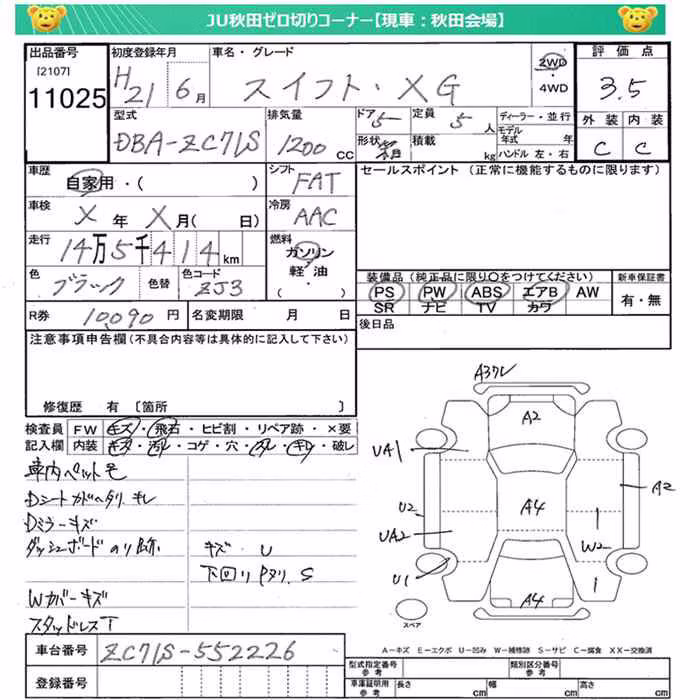 JU秋田ゼロ切りコーナー【現車：秋田会場】
出品番号 初度登録年月 車名・グレード 2WD ・ 4WD 評価点
[2107] 11025 H21 6月 スイフト・XG 3.5
型式 排気量 ドア 5 定員 5人 ディーラー・並行 外装 内装
DBA-ZC71S 1200cc 形状 積載 kg モデル年式 年 ハンドル 左・右 C C
車歴 シフト セールスポイント (正常に機能するものに限ります)
自家用・( ) FAT
車検 X年 X月( 日) 冷房 AAC
走行 14万5千414km 燃料 ガソリン・軽油・( )
色 ブラック 色替 色コード ZJ3
装備品(純正品に限り○をつけてください) 新車保証書
PS PW ABS エアB AW 有・無
SR ナビ TV カワ
R券 10,090円 名変期限 月 日 後日品
注意事項申告欄(不具合内容等は具体的に記入して下さい)
修復歴 有 〔箇所 〕
検査員 FW キズ・飛石・ヒビ割・リペア跡・×要
記入欄 内装 キズ・汚レ・コゲ・穴・スレ・キレ・破レ
車内ペット毛
Dシートカドヘタリ、キレ
Dミラーキズ
ダッシュボードのリ跡 キズ U
下回リPヌリ、S
Wカバーキズ
スタッドレスT
A3ワレ
A2
UA1
A4
A2
U2
UA2
W2
U1
A4
スペア
A－キズ E－エクボ U－凹み W－補修跡 S－サビ C－腐食 XX－交換済
車台番号 ZC71S-552226
登録番号
型式指定番号 参考 類別区分番号 参考
車庫証明用 参考 長さ cm 幅 cm 高さ cm